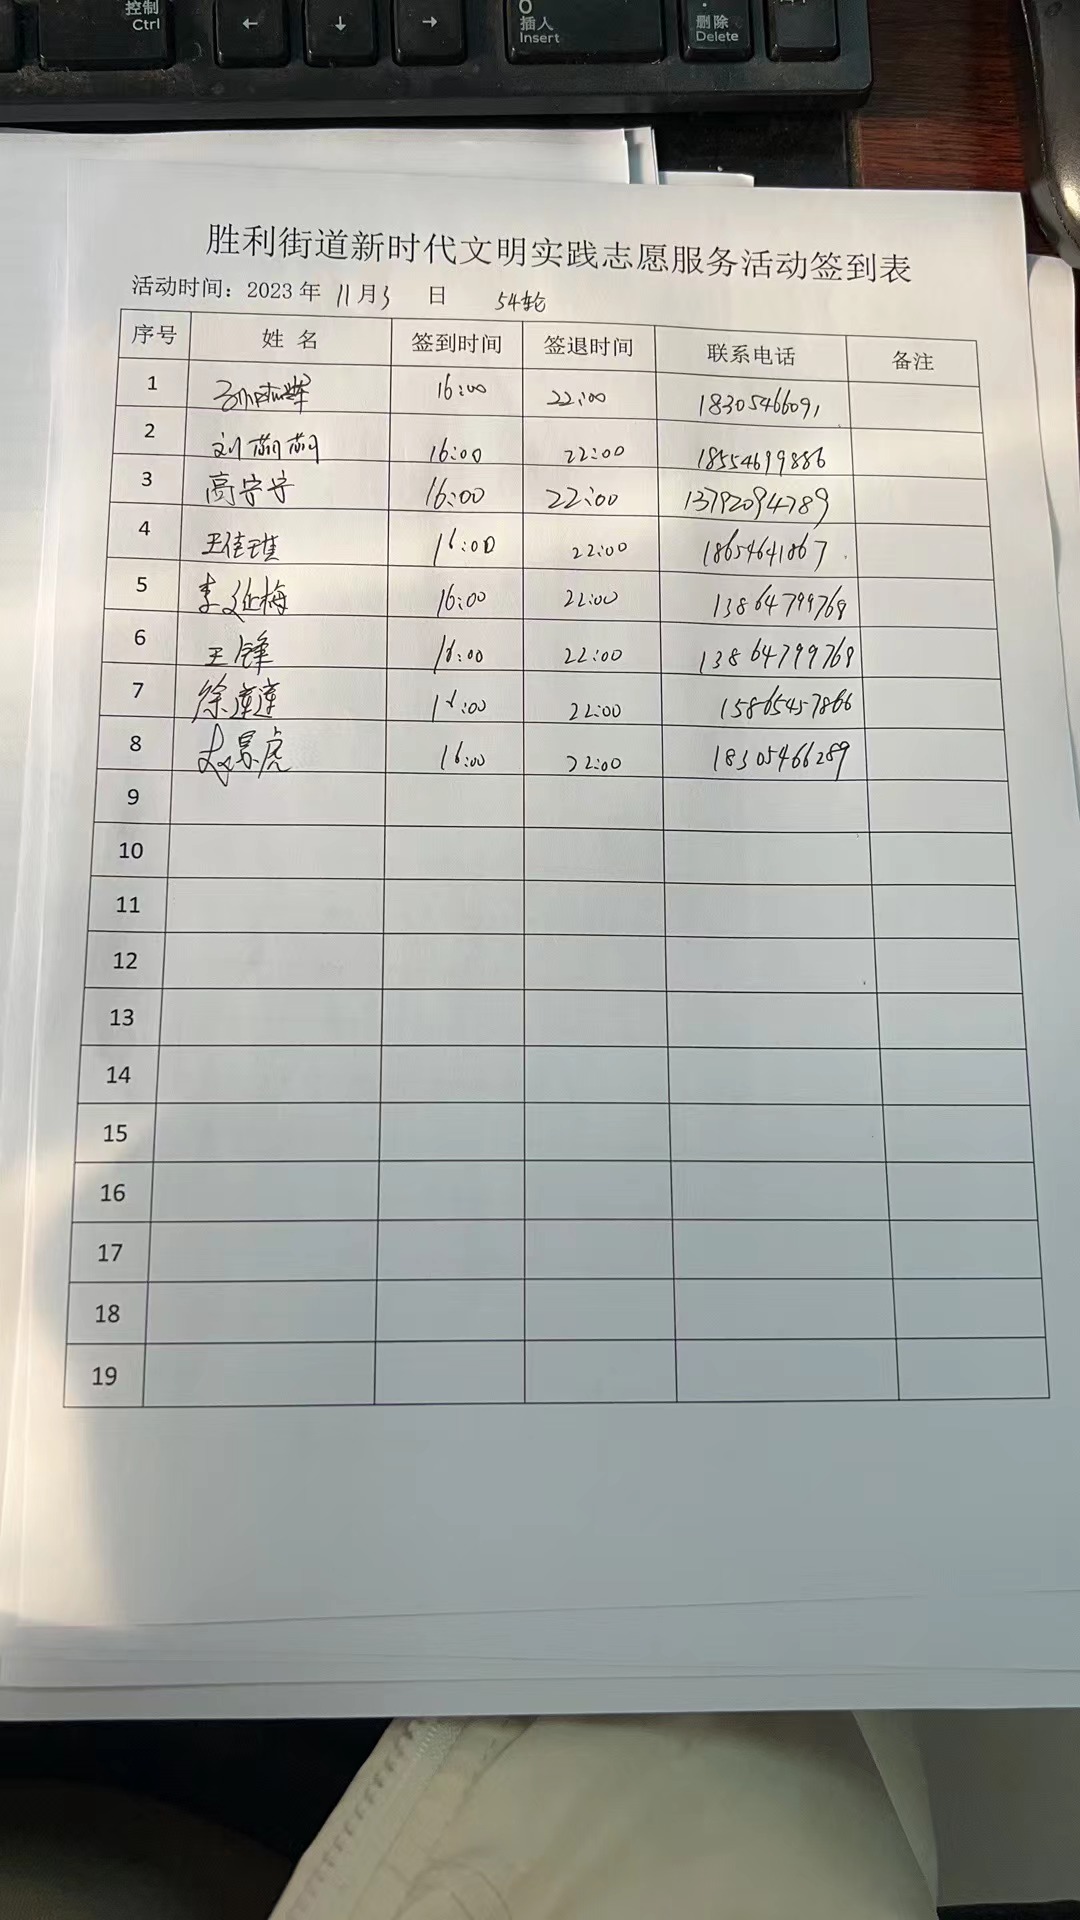 控制
Ctrl
←
↓
→
0
插入
Insert
.
删除
Delete
胜利街道新时代文明实践志愿服务活动签到表
活动时间：2023 年 11月3 日 54轮
序号 姓 名 签到时间 签退时间 联系电话 备注
1 16:00 22:00 18305466091
2 刘莉莉 16:00 22:00 18554699886
3 高宁宁 16:00 22:00 13792094789
4 王佳琪 16:00 22:00 18654641867
5 李延梅 16:00 22:00 13864799769
6 王锋 16:00 22:00 13864799769
7 徐莲莲 16:00 22:00 15865457866
8 景虎 16:00 22:00 18305466289
9
10
11
12
13
14
15
16
17
18
19